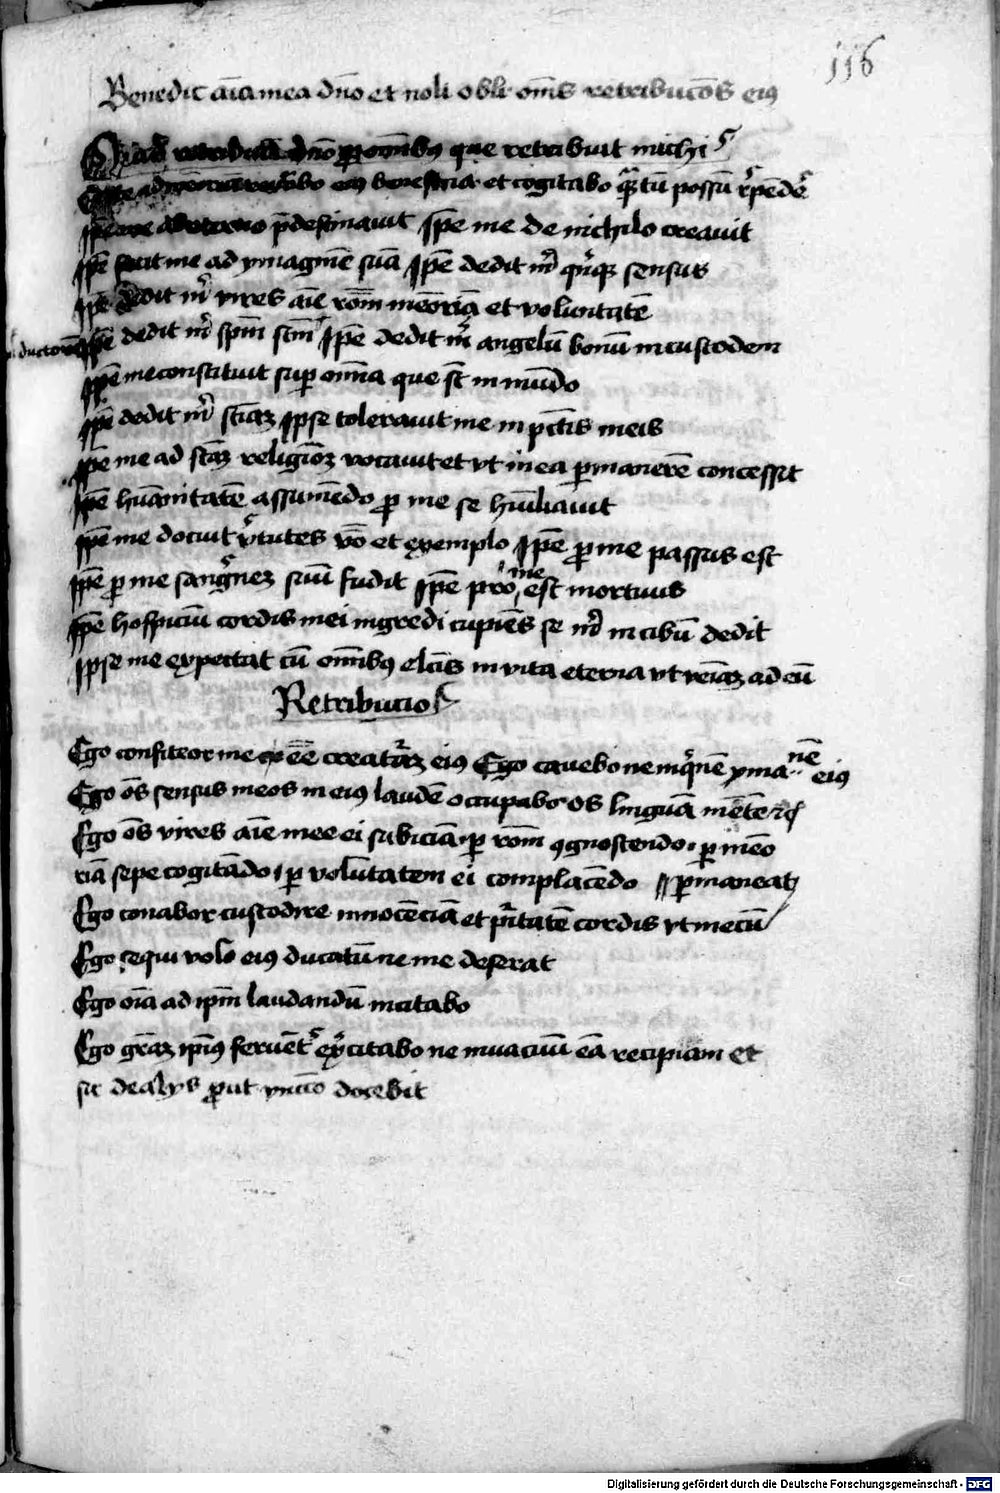 116
Benedic aīa mea dn̄o et noli obli om̄s retribuc̄oēs eiꝯ
Quid retribuā dn̄o ꝓ om̄ibꝯ que retribuit michi
eiꝯ beneficia et cogitabo q̄ꝫtū possū r̄pēdē
Ipē me ab eterno p̄destinauit Ipē me de nichilo creauit
Ipē fecit me ad ymaginē suā Ipē dedit m̄ qn̄qꝫ sensus
Ipē dedit m̄ vires aīe rōm memōriā et voluntatē
Ipē dedit m̄ sp̄m sc̄m Ipē dedit m̄ angelū bonū in custodem
ductorē
Ipē me constituit sup̄ om̄ia que st̄ in mūdo
Ipē dedit m̄ Ipse tolerauit me in pc̄tis meis
Ipē me ad sc̄aꝫ religiōꝫ vocauit et vt in ea ꝑmanerē concessit
Ipē hūanitatē assumēdo ꝓ me se hūiliauit
Ipē me docuit v̄tutes v̄bo et exemplo Ipē ꝓ me passus est
Ipē ꝓ me sangn̄eꝫ suū fudit Ipē pro me est mortuus
Ipē hospiciū cordis mei ingredi cupiēs se m̄ in cibū dedit
Ipse me expectat cū om̄ibꝯ elc̄is in vita eterna vt veīaꝫ ad eū
Retribucio
Ego confiteor me eē̄ creat̄aꝫ eiꝯ Ego cauebo ne inq̄nē yma nē eiꝯ
Ego ōs sensus meos in eiꝯ laudē occupabo os linguā mētē ⁊c̄
Ego ōs vires aīe mee ei subiciā ꝑ rōm ꝯgnoscendo ꝑ mēo
riā sepe cogitādo ꝑ volūtatem ei complacēdo // ꝑmaneat
Ego conabor custodire innocēciā et pūritatē cordis vt mecū
Ego sequi volo eiꝯ ducatū ne me deserat
Ego oīa ad ip̄m laudandū incitabo
Ego gr̄aꝫ ip̄iꝯ feruēt̄ excitabo ne in vacuū eā recipiam et
sic de alijs ꝓut vnc̄o docebit
Digitalisierung gefördert durch die Deutsche Forschungsgemeinschaft - DFG